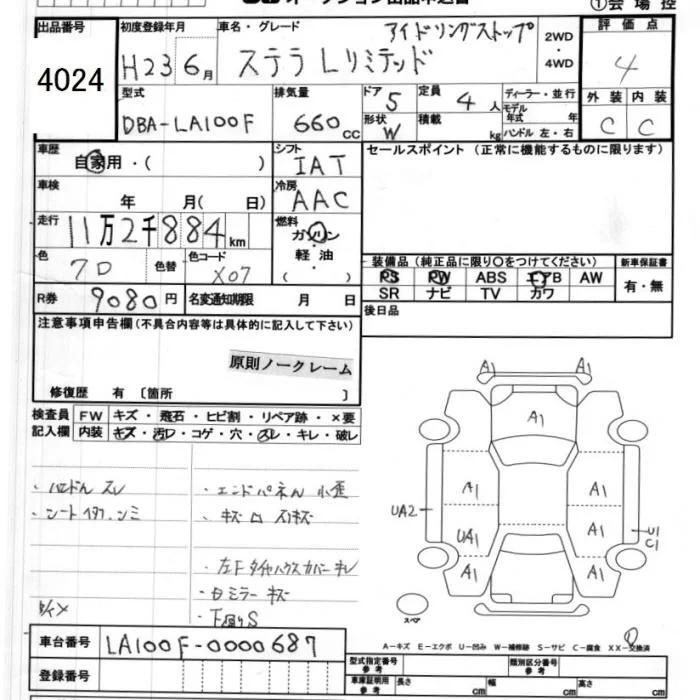 ①会場控
出品番号 初度登録年月 車名・グレード アイドリングストップ 2WD・4WD 評価点
4024 H23 6月 ステラ Lリミテッド 4
型式 排気量 ドア 5 定員 4人 ディーラー・並行 外装 内装
DBA-LA100F 660cc 形状 W 積載 kg モデル年式 年 ハンドル 左・右 C C
車歴 自家用・( ) シフト IAT セールスポイント (正常に機能するものに限ります)
車検 年 月( 日) 冷房 AAC
走行 11万2千884km 燃料 ガソリン・軽油・( )
色 色替 色コード X07
装備品(純正品に限り○をつけてください) 新車保証書
PS PW ABS エアB AW 有・無
SR ナビ TV カワ
R券 9080円 名変通知期限 月 日 後日品
注意事項申告欄(不具合内容等は具体的に記入して下さい)
原則ノークレーム
修復歴 有 〔箇所 〕
検査員記入欄 FW キズ・飛石・ヒビ割・リペア跡・×要
内装 キズ・汚レ・コゲ・穴・スレ・キレ・破レ
・ハンドル スレ
・エンドパネル 小歪
・キズ
・左Fタイヤハウスカバーキレ
・ミラー キズ
・下廻りS
A1 A1
A1
A1 A1
UA2 UA1 A1 U1 C1
A1 A1
スペア
車台番号 LA100F-0000687
A－キズ E－エクボ U－凹み W－補修跡 S－サビ C－腐食 XX－交換済
登録番号
型式指定番号 参考 類別区分番号 参考
車庫証明用 参考 長さ cm 幅 cm 高さ cm